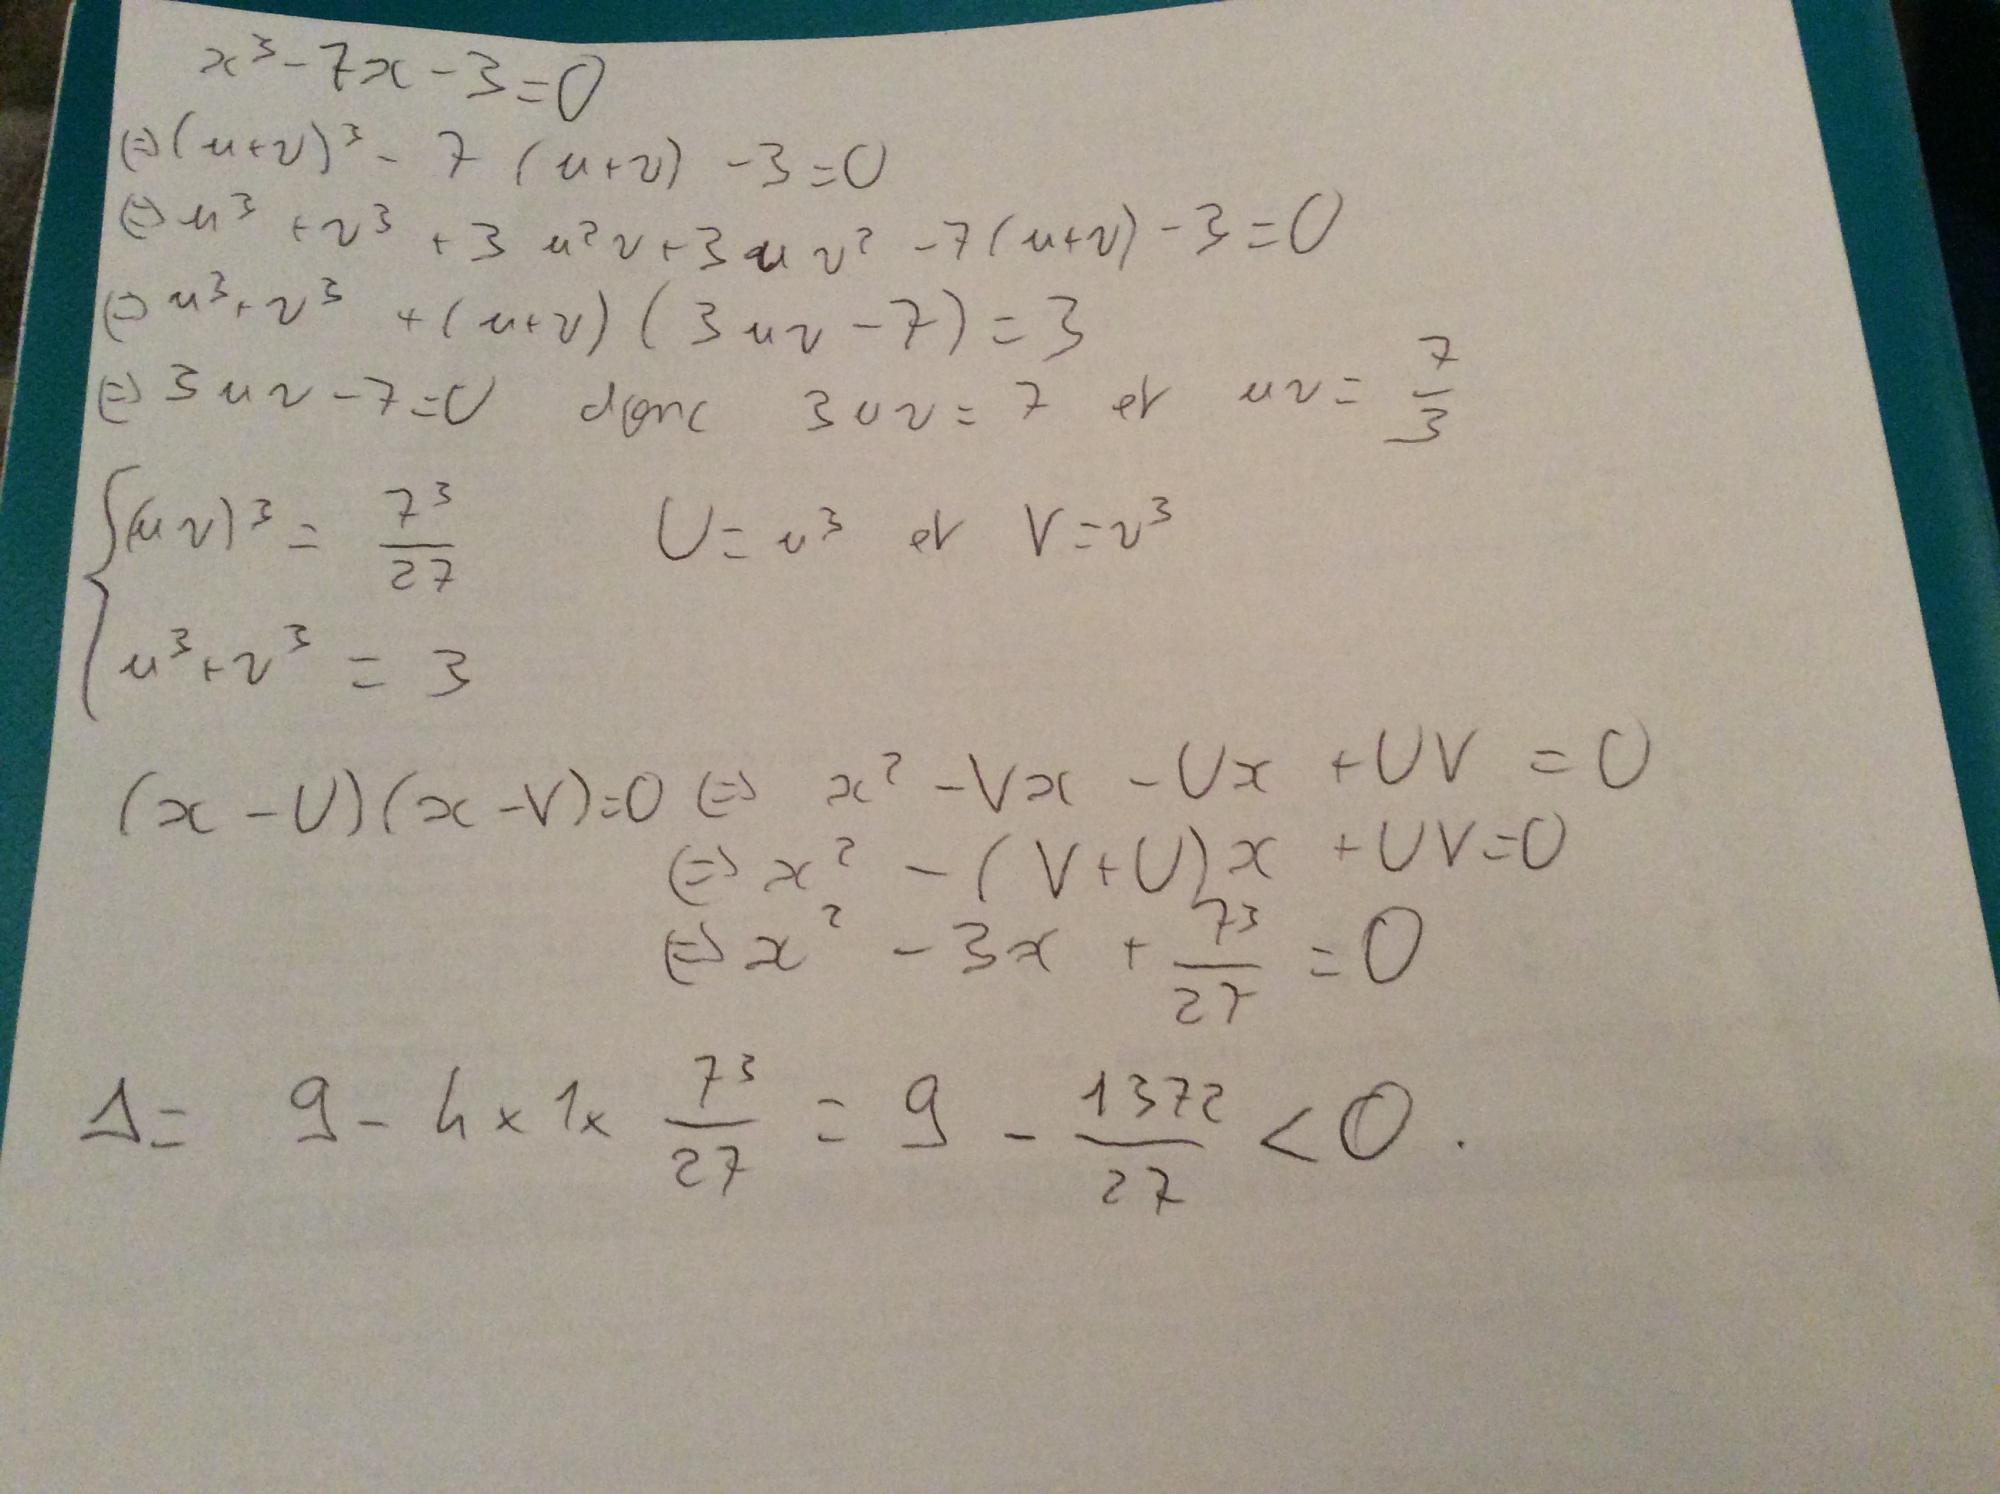 x³ - 7x - 3 = 0
⇔ (u+v)³ - 7 (u+v) - 3 = 0
⇔ u³ + v³ + 3 u²v + 3 u v² - 7(u+v) - 3 = 0
⇔ u³ + v³ + (u+v) (3uv - 7) = 3
⇔ 3uv - 7 = 0 donc 3uv = 7 et uv = 7/3
{ (uv)³ = 7³/27 U = u³ et V = v³
u³ + v³ = 3
(x - U)(x - V) = 0 ⇔ x² - Vx - Ux + UV = 0
⇔ x² - (V+U)x + UV = 0
⇔ x² - 3x + 7³/27 = 0
Δ = 9 - 4 × 1 × 7³/27 = 9 - 1372/27 < 0.